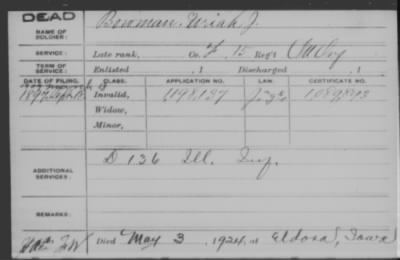 DEAD
NAME OF SOLDIER: Bowman, Uriah J.
SERVICE: Late rank, Co. F, 15 Reg't
TERM OF SERVICE: Enlisted , 1 Discharged , 1
DATE OF FILING. CLASS. APPLICATION NO. LAW. CERTIFICATE NO.
1897 Invalid, 1198,137 1,089,893
Widow,
Minor,
ADDITIONAL SERVICES: D 136 Ill. Inf.
REMARKS:
Died May 3, 1924, at Eldora, Iowa